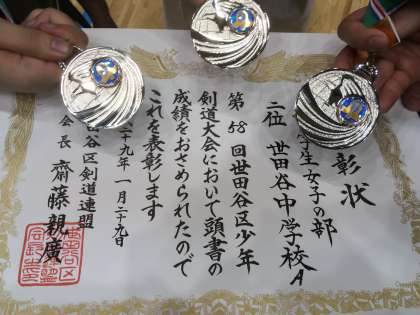 彰状
学生女子の部
二位 世田谷中学校A
第58回世田谷区少年
剣道大会において頭書の
成績をおさめられたので
これを表彰します
二十九年一月二十九日
田谷区剣道連盟
会長 齋藤親廣